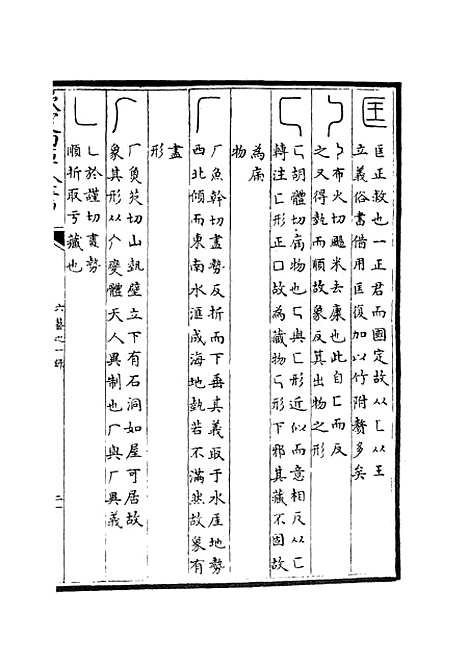 匡
匡正救也一正君而國定故从匚从王
立義俗書借用匡復加以竹附贅多矣
布火切颺米去康也此自匚而反
之又得埶而順故象反其出物之形
匸
匸胡體切㢈物也匸與匚形近似而意相反从匚
轉注匚形正口故為藏物匸形下邪其藏不固故
為㢈
物
厂
厂魚幹切畫勢反折而下垂其義取于水厓地勢
西北傾而東南水滙成海地埶若不滿然故象有
畫
形
厂
厂負芡切山埶壁立下有石洞如屋可居故
象其形从人變體天人異制也厂與厂異義
乚
乚於謹切畫勢
順折取亏藏也
六藝之一錄
二一